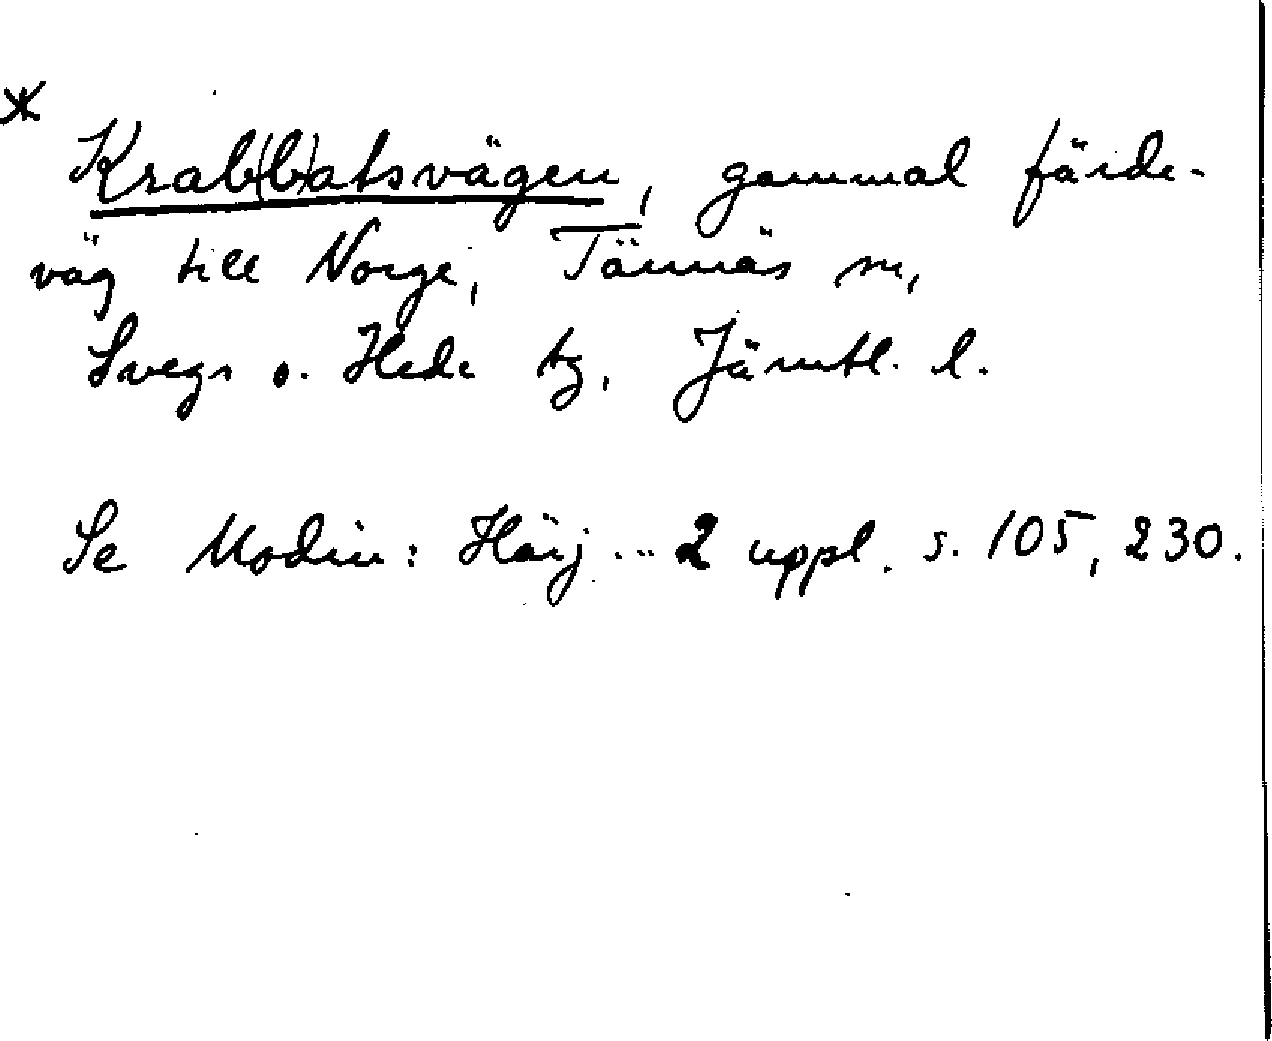 *
Krab(b)atsvägen, gammal färde-
väg till Norge, Tännäs sn,
Svegs o. Hede tg, Jämtl. l.
Se Modin: Härj ... 2 uppl. s. 105, 230.